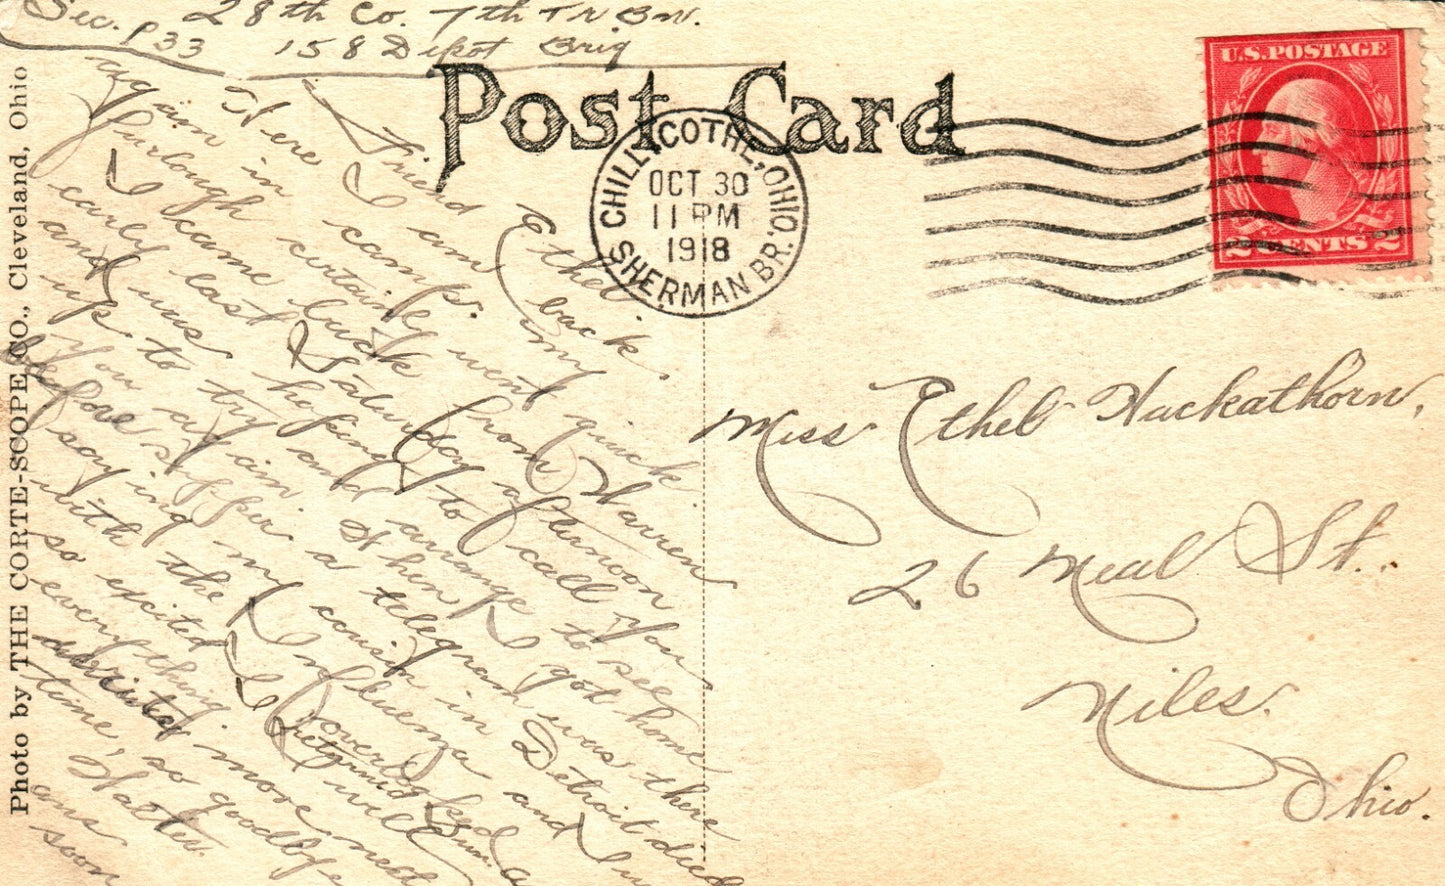 Sec. P33 28th Co. 7th Tr Bn.
158 Depot Brig
Post Card
CHILLICOTHE, OHIO
OCT 30
11 PM
1918
SHERMAN BR.
U.S. POSTAGE
2 CENTS 2
Friend Ethel
Here I am back
again in camp. my
furlough certainly went quick
I came back from Warren
early last Saturday afternoon
and was hoping to call you
up to try and arrange to see
you again. When I got home
before supper a telegram was there
saying my cousin in Detroit died
with the Influenza and I
so excited I overlooked
everything. I returned Sun.
will
more next
time, so goodbye
Walter.
ans
soon
Miss Ethel Hackathorn,
26 Neal St.
Niles.
Ohio.
Photo by THE CORTE-SCOPE CO., Cleveland, Ohio